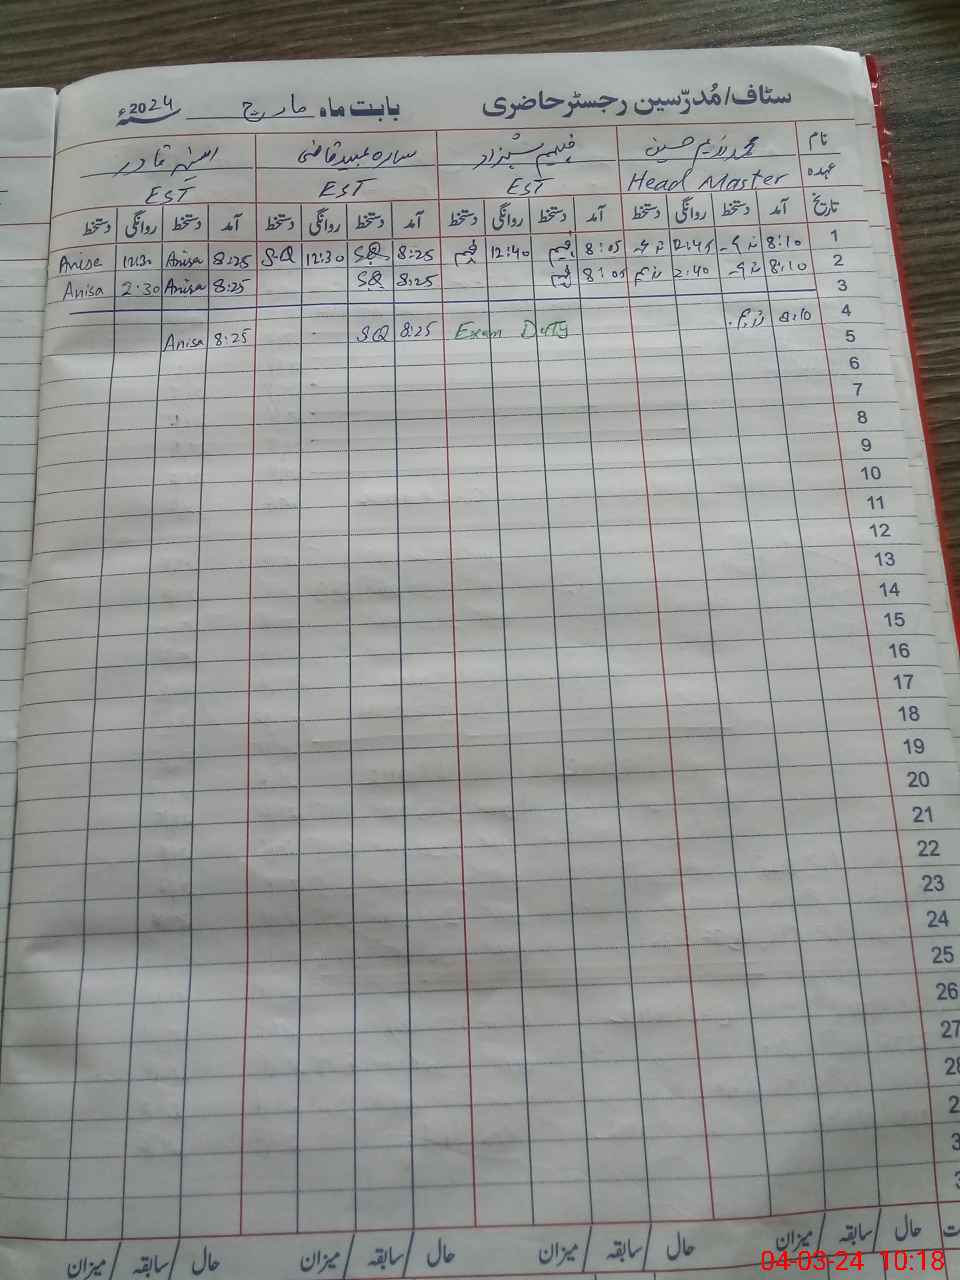 سٹاف/مُدرّسین رجسٹر حاضری بابت ماہ مارچ سنہ 2024ء
نام محمد ندیم حسین فہیم شہزاد سارہ عبید قاضی انیسہ قادر
عہدہ Head Master EST EST EST
تاریخ آمد دستخط روانگی دستخط آمد دستخط روانگی دستخط آمد دستخط روانگی دستخط آمد دستخط روانگی دستخط
1 8:10 12:45 8:05 فہیم 12:40 فہیم 8:25 SQ 12:30 S.Q 8:25 Anisa 12:30 Anisa
2 8:10 2:40 ندیم 8:05 فہیم 8:25 SQ 8:25 Anisa 2:30 Anisa
3
4 8:10 ندیم Exam Duty 8:25 SQ 8:25 Anisa
5
6
7
8
9
10
11
12
13
14
15
16
17
18
19
20
21
22
23
24
25
26
27
حال سابقہ میزان حال سابقہ میزان حال سابقہ میزان حال سابقہ میزان
04-03-24 10:18